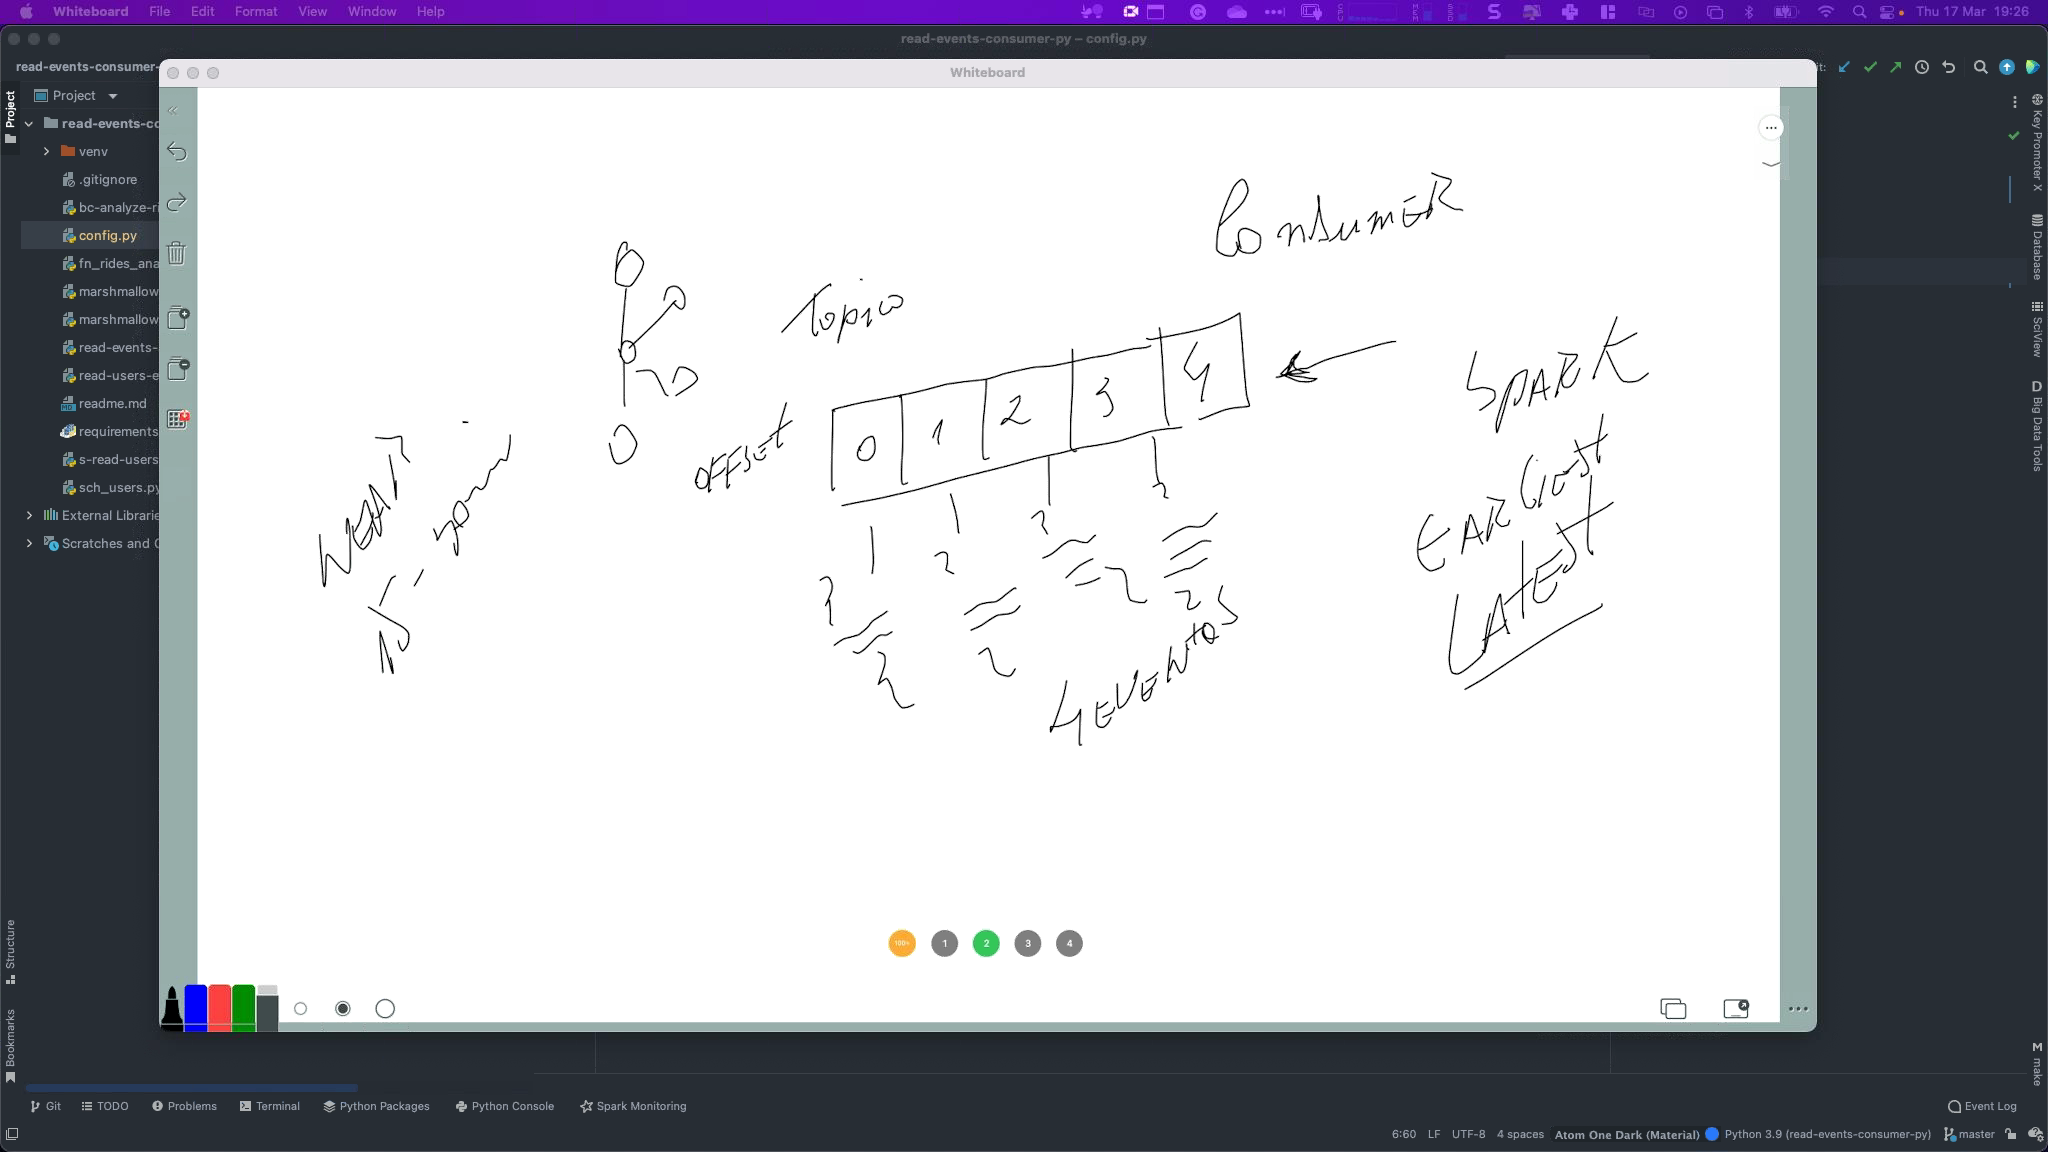 Whiteboard File Edit Format View Window Help
Thu 17 Mar 19:26
read-events-consumer-py – config.py
read-events-consumer-
it:
Whiteboard
Project
Project
read-events-co
venv
.gitignore
bc-analyze-ri
config.py
fn_rides_ana
marshmallow
marshmallow
read-events-
read-users-e
readme.md
requirements
s-read-users
sch_users.py
External Librarie
Scratches and C
Consumer
Topico
SPARK
OFFSET
0 1 2 3 4
EARLIEST
LATEST
4 EVENTOS
100%
1 2 3 4
Key Promoter X
Database
SciView
D Big Data Tools
M make
Structure
Bookmarks
Git TODO Problems Terminal Python Packages Python Console Spark Monitoring
Event Log
6:60 LF UTF-8 4 spaces Atom One Dark (Material) Python 3.9 (read-events-consumer-py) master